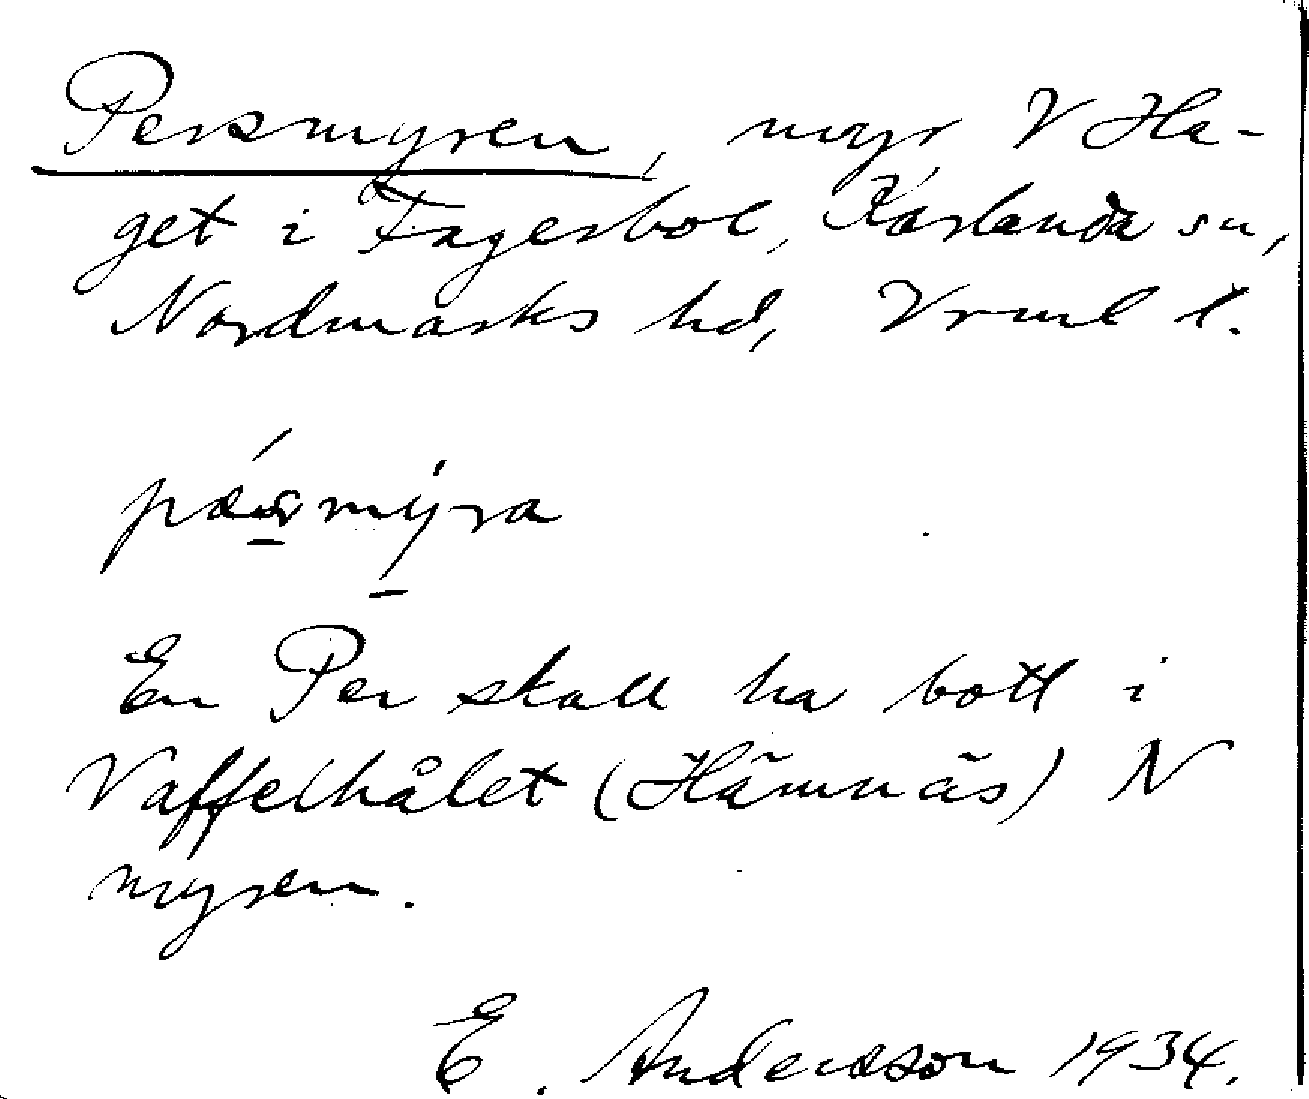 Persmyren, myr V Ha-
get i Fagerbol, Karlanda sn,
Nordmarks hd, Vrml l.
En Per skall ha bott i
Vaffelhålet (Hämnäs) N
myren.
E. Andersson 1934.